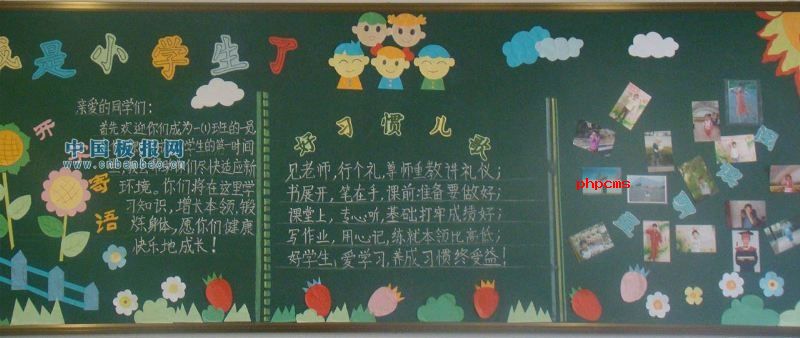 是小学生了
开
寄
语
亲爱的同学们：
首先欢迎你们成为一(1)班的一员,
学生的第一时间
们尽快适应新
环境。你们将在这里学
习知识，增长本领,锻
炼身体,愿你们健康
快乐地成长！
中国板报网
www.cnbanbao.cn
好习惯儿歌
见老师,行个礼,尊师重教讲礼仪；
书展开,笔在手,课前准备要做好；
课堂上,专心听,基础打牢成绩好；
写作业,用心记,练就本领比高低；
好学生,爱学习,养成习惯终受益！
phpcms